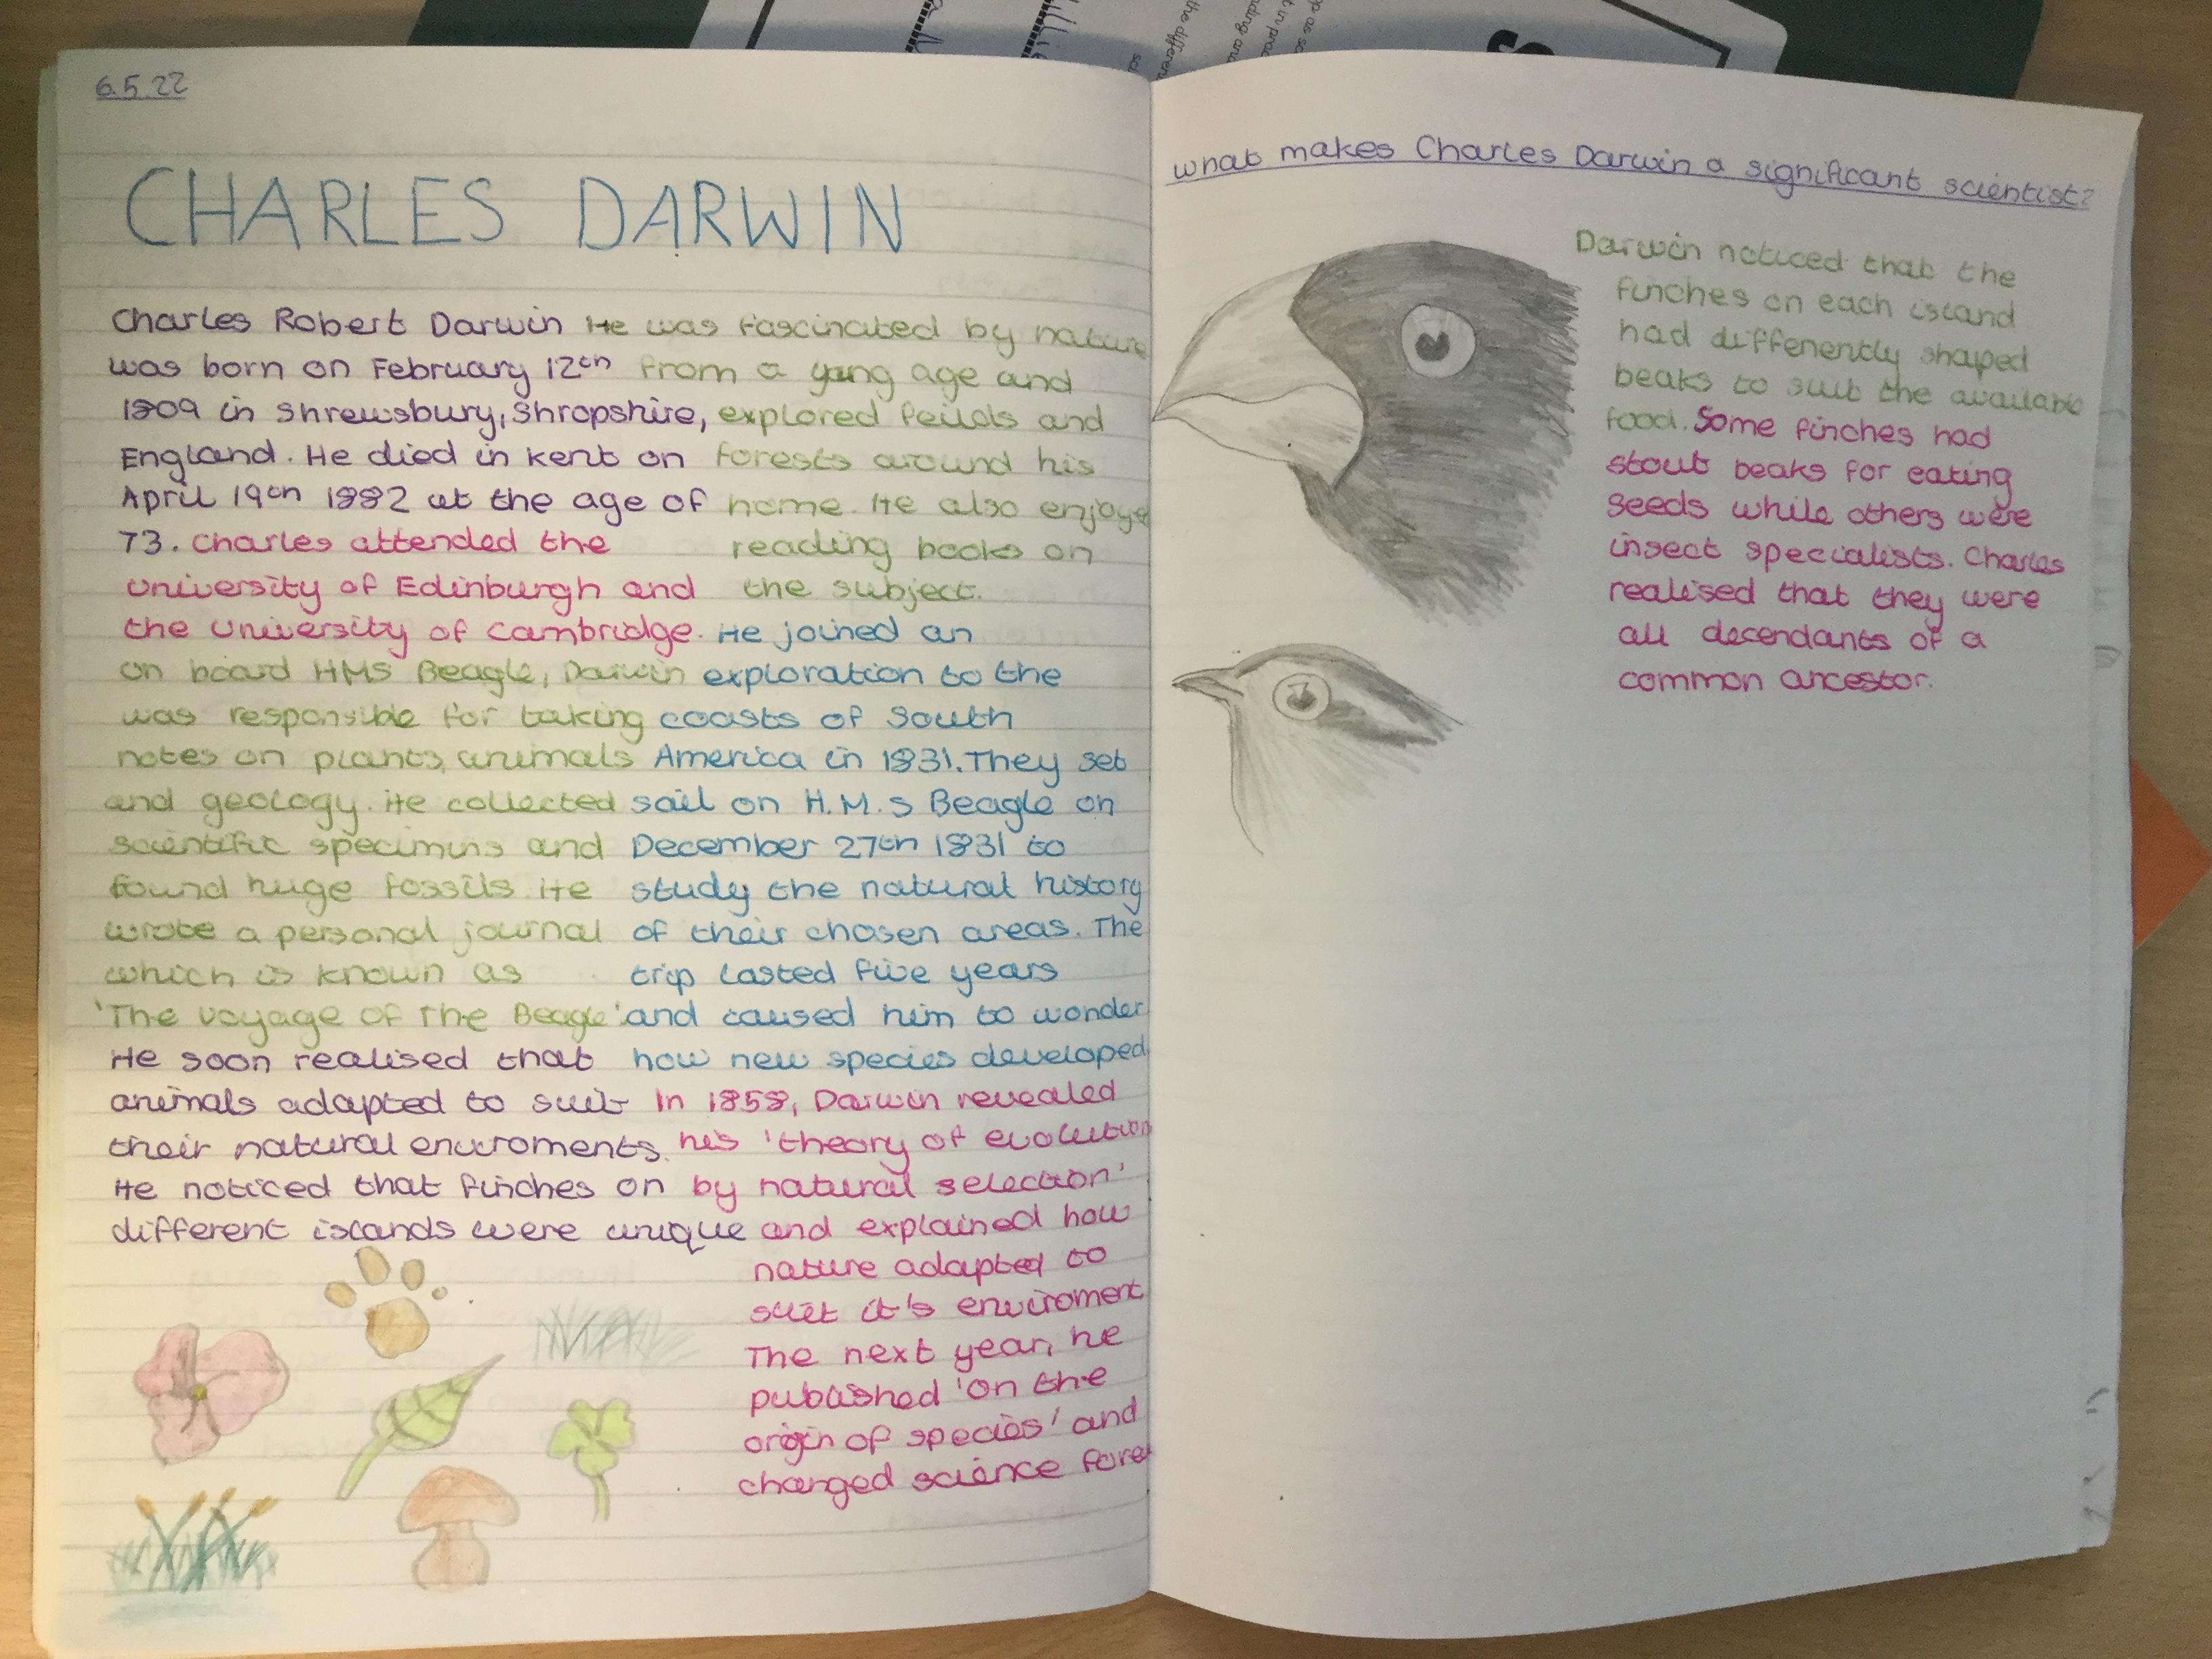 6.5.22
CHARLES DARWIN
Charles Robert Darwin
was born on February 12th
1809 in Shrewsbury, Shropshire,
England. He died in Kent on
April 19th 1882 at the age of
73. Charles attended the
University of Edinburgh and
the University of Cambridge.
He was fascinated by nature
from a young age and
explored feilds and
forests around his
home. He also enjoye
reading books on
the subject.
He joined an
exploration to the
coasts of South
America in 1831. They set
sail on H.M.S Beagle on
December 27th 1831 to
study the natural history
of their chosen areas. The
trip lasted five years
and caused him to wonder
how new species developed
on board HMS Beagle, Darwin
was responsible for taking
notes on plants, animals
and geology. He collected
scientific specimins and
found huge fossils. He
wrote a personal journal
which is known as
'The Voyage of The Beagle'.
He soon realised that
animals adapted to suit
their natural enviroments.
He noticed that finches on
different islands were unique
In 1858, Darwin revealed
his 'theory of evolution
by natural selection'
and explained how
nature adapted to
suit it's enviroment
The next year, he
published 'On the
origin of species' and
changed science
what makes Charles Darwin a significant scientist?
Darwin noticed that the
finches on each island
had diffenently shaped
beaks to suit the available
food. Some finches had
stout beaks for eating
seeds while others were
insect specialists. Charles
realised that they were
all decendants of a
common ancestor.